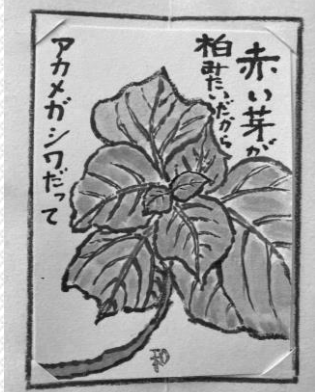 赤い芽が
柏みたいだから
アカメガシワだって